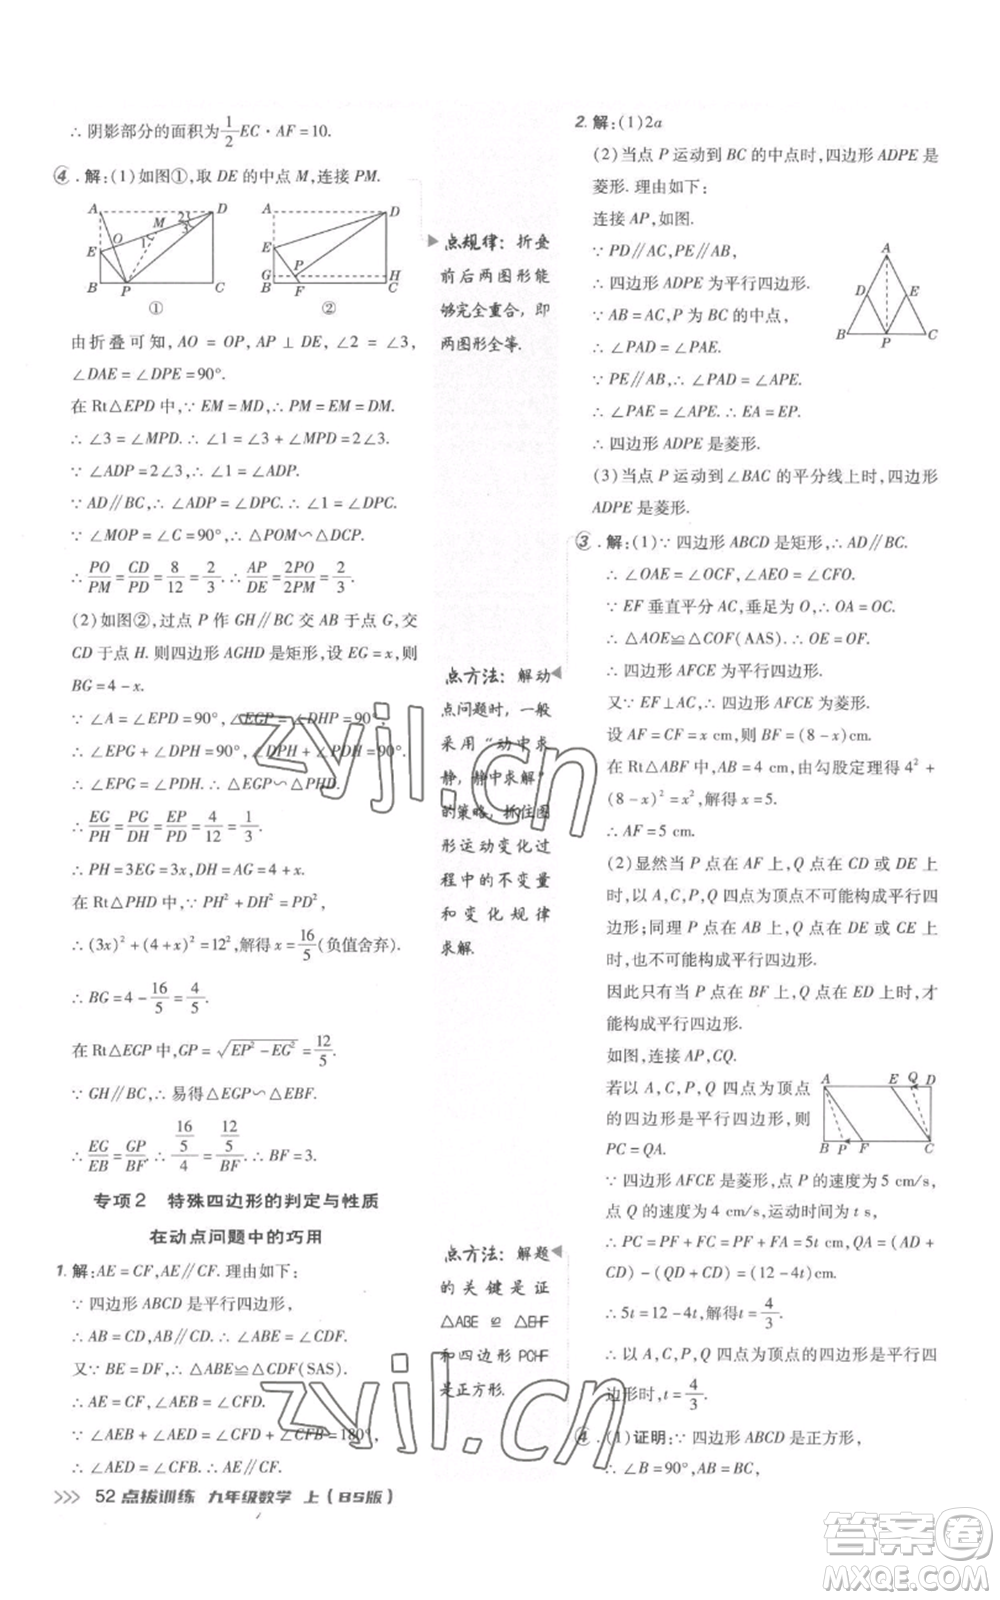 ∴ 阴影部分的面积为 1/2 EC · AF = 10.
④. 解:(1)如图①,取 DE 的中点 M,连接 PM.
A D E O M 1 2 3 B P C
①
A D E G P H B F C
②
由折叠可知, AO = OP, AP ⊥ DE, ∠2 = ∠3,
∠DAE = ∠DPE = 90°.
在 Rt△EPD 中,∵ EM = MD,∴ PM = EM = DM.
∴ ∠3 = ∠MPD. ∴ ∠1 = ∠3 + ∠MPD = 2∠3.
∵ ∠ADP = 2∠3,∴ ∠1 = ∠ADP.
∵ AD∥BC,∴ ∠ADP = ∠DPC. ∴ ∠1 = ∠DPC.
∵ ∠MOP = ∠C = 90°,∴ △POM∽△DCP.
∴ PO/PM = CD/PD = 8/12 = 2/3. ∴ AP/DE = 2PO/2PM = 2/3.
(2)如图②,过点 P 作 GH∥BC 交 AB 于点 G,交
CD 于点 H. 则四边形 AGHD 是矩形,设 EG = x,则
BG = 4 - x.
∵ ∠A = ∠EPD = 90°,∠EGP = ∠DHP = 90°,
∴ ∠EPG + ∠DPH = 90°,∠DPH + ∠PDH = 90°.
∴ ∠EPG = ∠PDH. ∴ △EGP∽△PHD.
∴ EG/PH = PG/DH = EP/PD = 4/12 = 1/3.
∴ PH = 3EG = 3x, DH = AG = 4 + x.
在 Rt△PHD 中,∵ PH² + DH² = PD²,
∴ (3x)² + (4 + x)² = 12²,解得 x = 16/5(负值舍弃).
∴ BG = 4 - 16/5 = 4/5.
在 Rt△EGP 中, GP = √(EP² - EG²) = 12/5.
∵ GH∥BC,∴ 易得△EGP∽△EBF.
∴ EG/EB = GP/BF. ∴ (16/5)/4 = (12/5)/BF. ∴ BF = 3.
专项2 特殊四边形的判定与性质
在动点问题中的巧用
1. 解: AE = CF, AE∥CF. 理由如下:
∵ 四边形 ABCD 是平行四边形,
∴ AB = CD, AB∥CD. ∴ ∠ABE = ∠CDF.
又∵ BE = DF,∴ △ABE≌△CDF(SAS).
∴ AE = CF, ∠AEB = ∠CFD.
∵ ∠AEB + ∠AED = ∠CFD + ∠CFB = 180°,
∴ ∠AED = ∠CFB. ∴ AE∥CF.
点规律: 折叠
前后两图形能
够完全重合,即
两图形全等.
点方法: 解动
点问题时,一般
采用“动中求
静,静中求解”
的策略,抓住图
形运动变化过
程中的不变量
和变化规律
求解.
点方法: 解题
的关键是证
△ABE ≌ △EHF
和四边形PCHF
是正方形.
2. 解:(1)2a
(2)当点 P 运动到 BC 的中点时,四边形 ADPE 是
菱形. 理由如下:
连接 AP,如图.
∵ PD∥AC, PE∥AB,
∴ 四边形 ADPE 为平行四边形.
∵ AB = AC, P 为 BC 的中点,
∴ ∠PAD = ∠PAE.
∵ PE∥AB,∴ ∠PAD = ∠APE.
∴ ∠PAE = ∠APE. ∴ EA = EP.
∴ 四边形 ADPE 是菱形.
A D E B P C
(3)当点 P 运动到∠BAC 的平分线上时,四边形
ADPE 是菱形.
③. 解:(1)∵ 四边形 ABCD 是矩形,∴ AD∥BC.
∴ ∠OAE = ∠OCF, ∠AEO = ∠CFO.
∵ EF 垂直平分 AC,垂足为 O,∴ OA = OC.
∴ △AOE≌△COF(AAS). ∴ OE = OF.
∴ 四边形 AFCE 为平行四边形.
又∵ EF⊥AC,∴ 四边形 AFCE 为菱形.
设 AF = CF = x cm,则 BF = (8 - x)cm.
在 Rt△ABF 中, AB = 4 cm,由勾股定理得 4² +
(8 - x)² = x²,解得 x = 5.
∴ AF = 5 cm.
(2)显然当 P 点在 AF 上, Q 点在 CD 或 DE 上
时,以 A, C, P, Q 四点为顶点不可能构成平行四
边形;同理 P 点在 AB 上, Q 点在 DE 或 CE 上
时,也不可能构成平行四边形.
因此只有当 P 点在 BF 上, Q 点在 ED 上时,才
能构成平行四边形.
如图,连接 AP, CQ.
若以 A, C, P, Q 四点为顶点
的四边形是平行四边形,则
PC = QA.
A E Q D B P F C
∵ 四边形 AFCE 是菱形,点 P 的速度为 5 cm/s,
点 Q 的速度为 4 cm/s,运动时间为 t s,
∴ PC = PF + CF = PF + AF = 5t cm, QA = (AD +
CD) - (CD + QD) = (12 - 4t)cm.
∴ 5t = 12 - 4t,解得 t = 4/3.
∴ 以 A, C, P, Q 四点为顶点的四边形是平行四
边形时, t = 4/3.
④. (1)证明:∵ 四边形 ABCD 是正方形,
∴ AB = BC, ∠B = ∠BCD = ∠DCG = 90°.
>>> 52 点拨训练 九年级数学 上(BS版)
zyjl.cn
zyjl.cn
答案圈
MXQE.COM